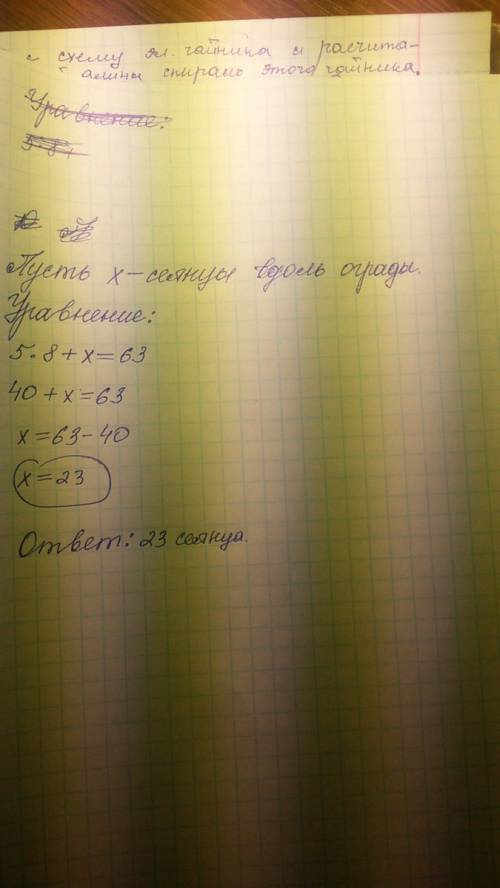 схему эл. чайника и расчита-
длины спираль этого чайника.
Уравнение:
Пусть x - сеянцы вдоль ограды.
Уравнение:
5·8+x=63
40+x=63
x=63-40
x=23
Ответ: 23 сеянца.